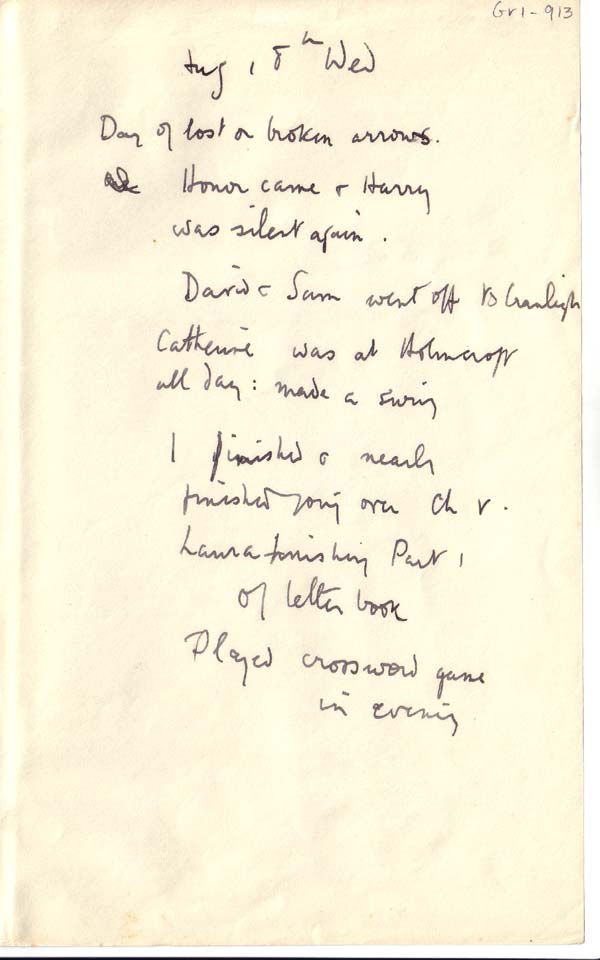 Gr1-913
Aug 18th Wed
Day of lost or broken arrows.
Honor came & Harry
was silent again.
David & Sam went off to Cranleigh
Catherine was at Holmcroft
all day: made a swing
I finished & nearly
finished going over Ch V.
Laura finishing Part 1
of letter book
Played crossword game
in evening